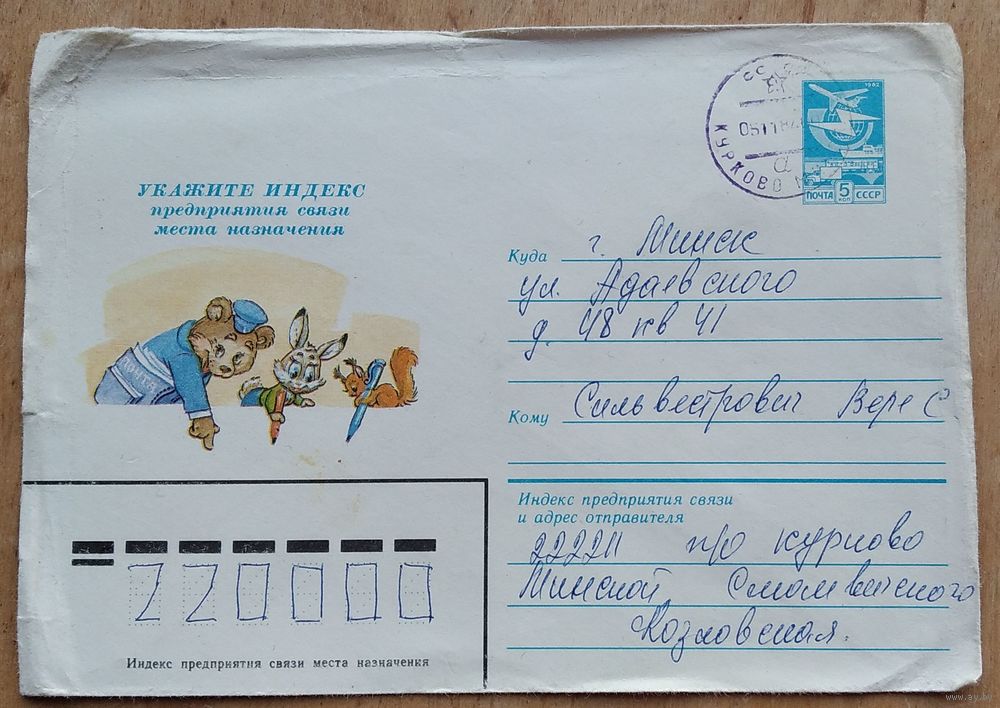 УКАЖИТЕ ИНДЕКС
предприятия связи
места назначения
ПОЧТА
КУРКОВО
1982
ПОЧТА 5 КОП СССР
Куда г. Минск
ул. Адаевского
д. 48 кв 41
Кому Сильвестрович Вере С
Индекс предприятия связи
и адрес отправителя
222211 п/о Курково
Минской
Козловская.
220000
Индекс предприятия связи места назначения
www.ay.by